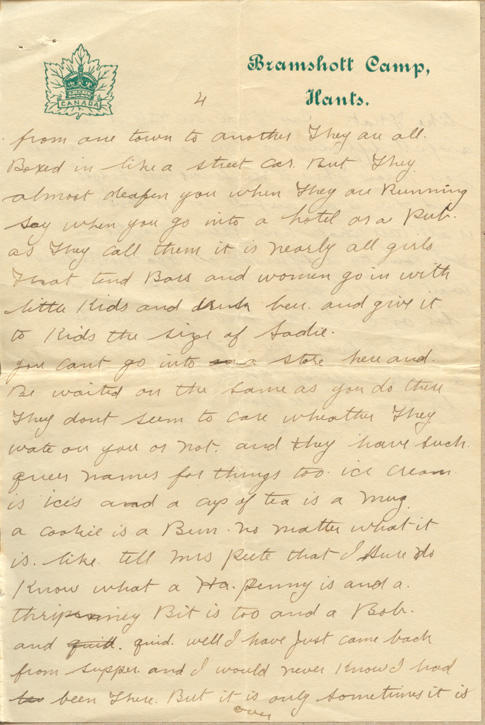 CANADA
Bramshott Camp,
Hants.
4
from one town to another They are all
Boxed in like a street car But They
almost deafen you when They are Running
say when you go into a hotel or a Pub.
as They call them it is nearly all girls
That tend Bars and women go in with
little Kids and drink beer. and give it
to Kids the size of Sadie.
you cant go into a store here and
Be waited on the same as you do there
They dont seem to care wheather They
wate on you or not. and they have such
queer names for things too ice cream
is ice's and a cup of tea is a mug
a cookie is a Bun. no matter what it
is. like. tell Mrs Peete that I sure do
Know what a Ha.penny is and a
thripenney Bit is too and a Bob.
and quid. well I have just came back
from supper and I would never Know I had
been There. But it is only sometimes it is
over